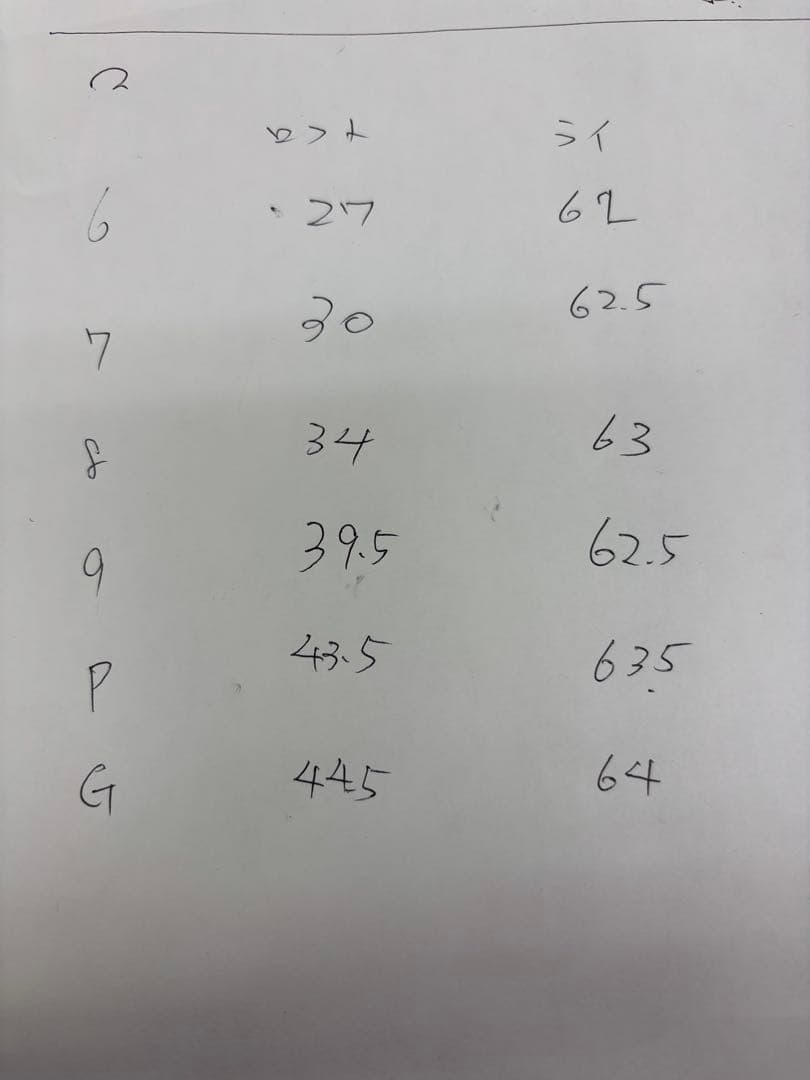 ロフト ライ
6 27 62
7 30 62.5
8 34 63
9 39.5 62.5
P 43.5 63.5
G 445 64